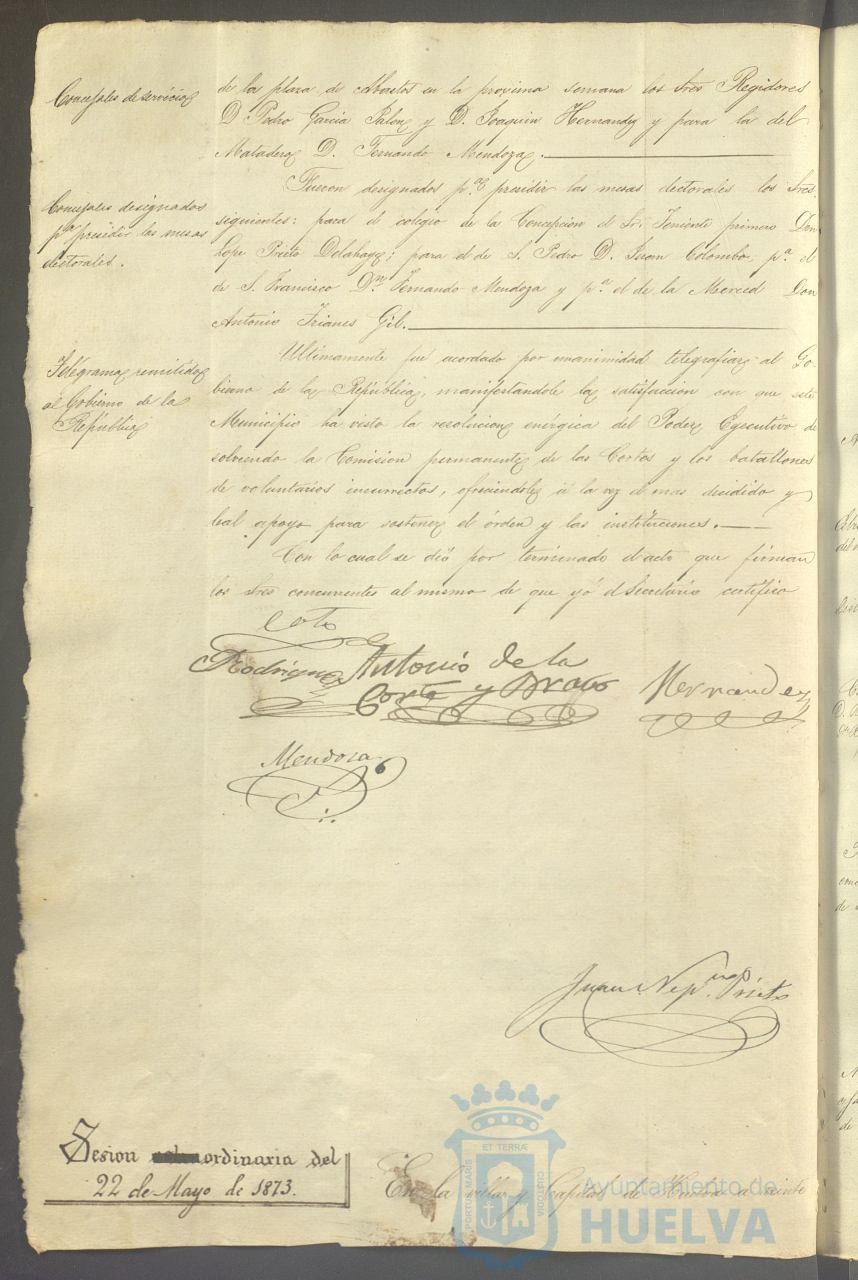 Concejales de servicio
de la plaza de Abastos en la proxima semana los Sres Regidores
D. Pedro Garcia Jalon y D. Joaquin Hernandez y para la del
Matadero D. Fernando Mendoza.
Concejales designados
pª presidir las mesas
electorales.
Fueron designados pª presidir las mesas electorales los Sres
siguientes: para el colegio de la Concepcion el Sr. Teniente primero Don
Lope Prieto Delahaye; para el de S. Pedro D. Juan Colombo, pª el
de S. Francisco Dn Fernando Mendoza y pª el de la Merced Don
Antonio Trianes Gil.
Telégrama remitido
al Gobierno de la
República
Ultimamente fué acordado por unanimidad telegrafiar al Go-
bierno de la República, manifestandole la satisfaccion con que este
Municipio ha visto la resolucion enérgica del Poder Ejecutivo di-
solviendo la Comision permanente de las Cortes y los batallones
de voluntarios incorrectos, ofreciendole á la vez el mas decidido y
leal apoyo para sostener el órden y las instituciones.
Con lo cual se dió por terminado el acto que firman
los Sres concurrentes al mismo de que yó el Secretario certifico
Coto
Rodriguez Antonio de la
Corte y Bravo Hernandez
Mendoza
Juan Nepno Prieto
Sesion ordinaria del
22 de Mayo de 1873.
En la villa y Capital de Huelva a veinte
ET TERRÆ
PORTUS MARIS
CUSTODIA
Ayuntamiento de
HUELVA